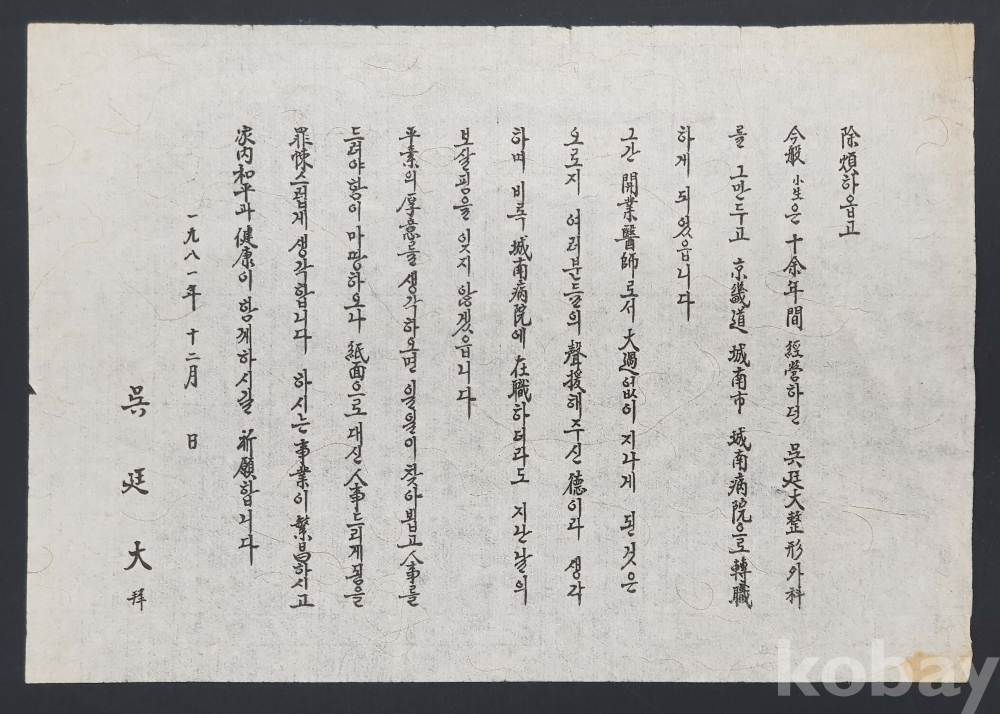 除煩하옵고
今般 小生은 十余年間 經營하던 吳廷大整形外科
를 그만두고 京畿道 城南市 城南病院으로 轉職
하게 되었읍니다
그간 開業醫師로서 大過없이 지나게 된것은
오로지 여러분들의 聲援해주신 德이라 생각
하며 비록 城南病院에 在職하더라도 지난날의
보살핌을 잊지 않겠읍니다
平素의 厚意를 생각하오면 일일이 찾아뵙고 人事를
드려야함이 마땅하오나 紙面으로 대신 人事드리게됨을
罪悚스럽게 생각합니다 하시는 事業이 繁昌하시고
家內和平과 健康이 함께하시길 祈願합니다
一九八一年 十二月 日
吳廷大 拜
kobay